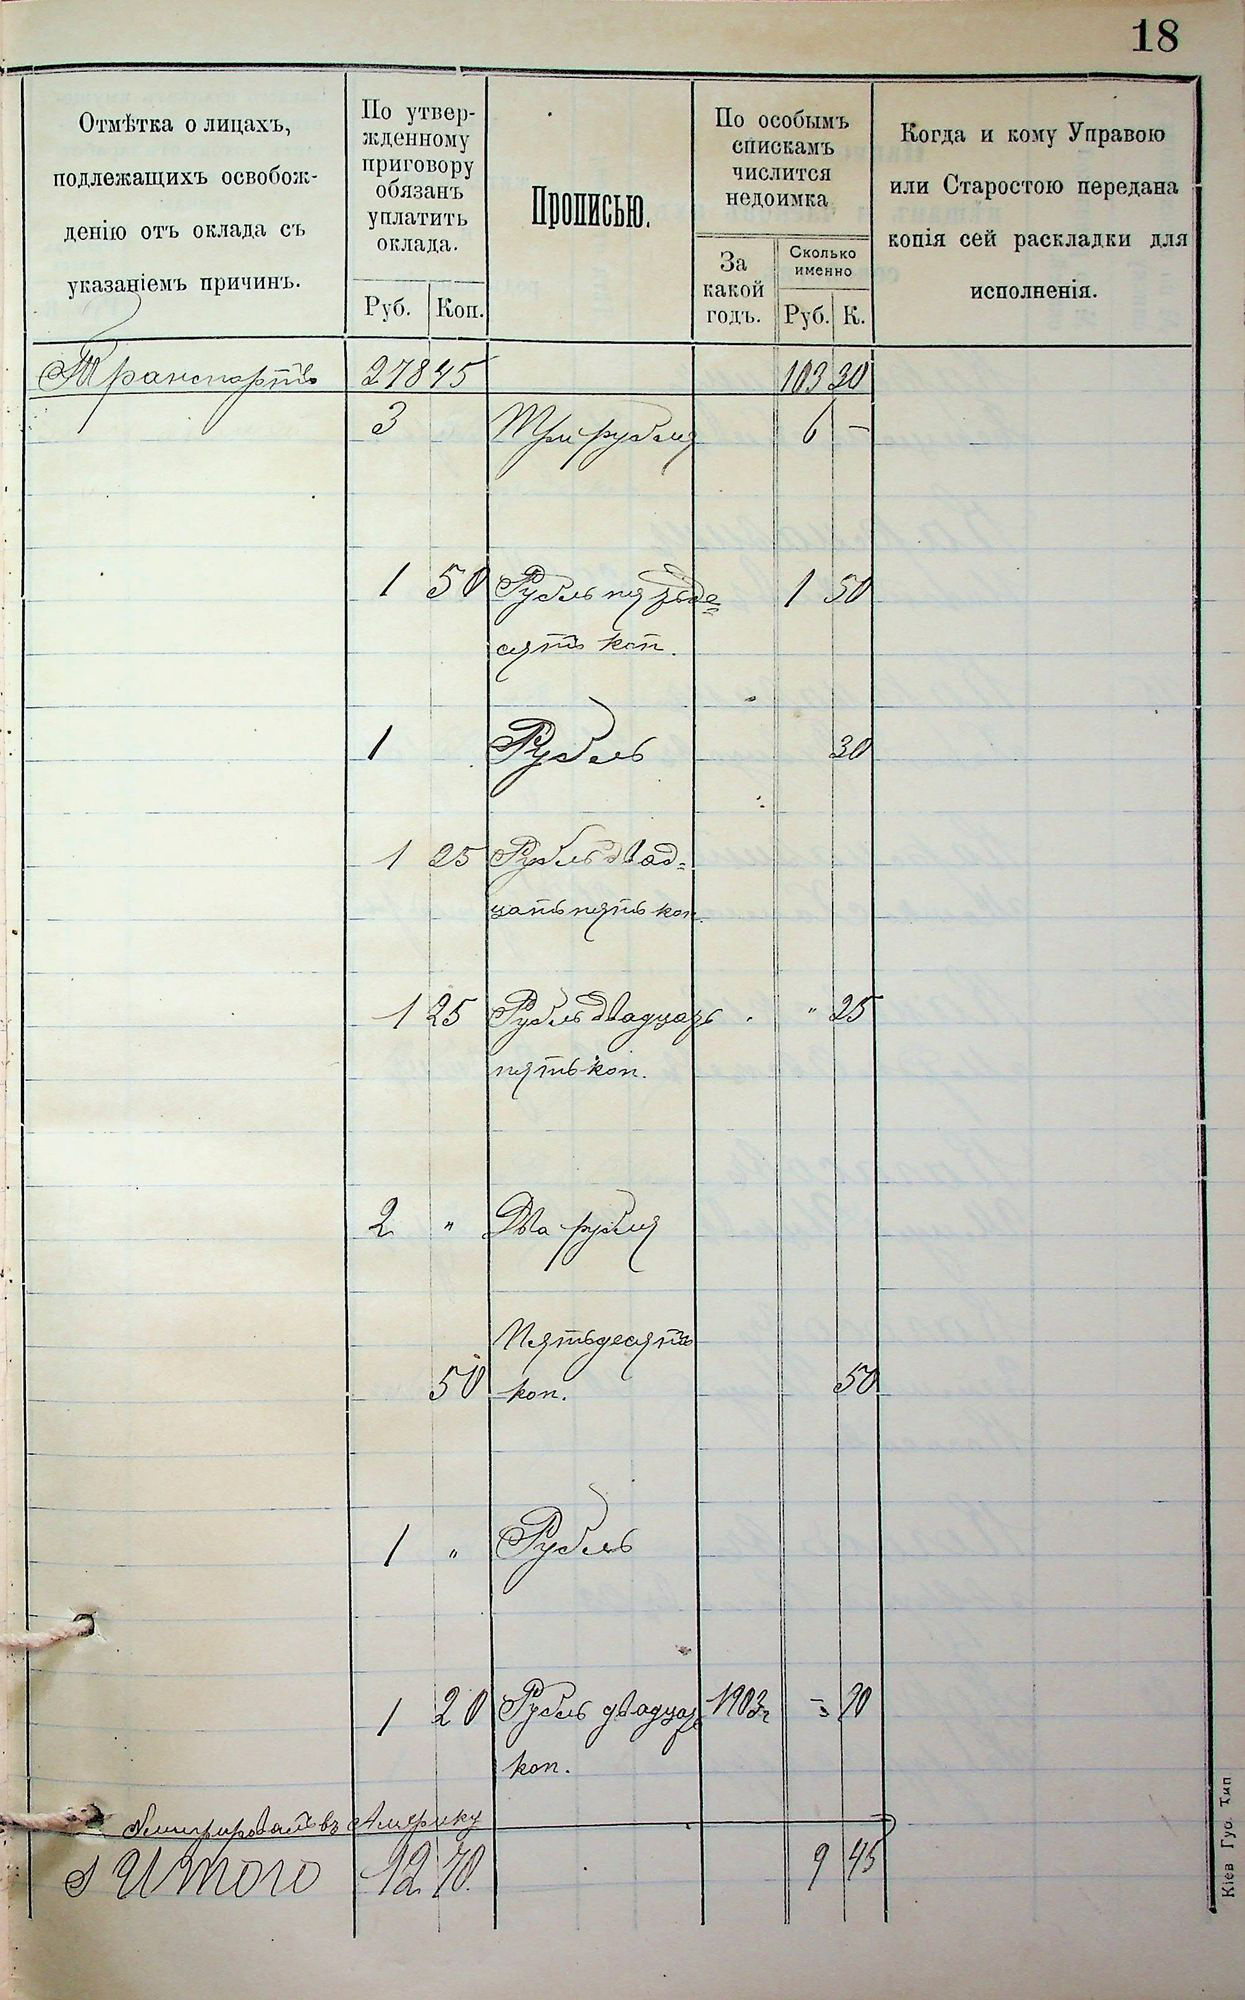 18
Отмѣтка о лицахъ,
подлежащихъ освобож-
денію отъ оклада съ
указаніемъ причинъ.
По утвер-
жденному
приговору
обязанъ
уплатить
оклада.
Руб. Коп.
Прописью.
По особымъ
спискамъ
числится
недоимка
За
какой
годъ.
Сколько
именно
Руб. К.
Когда и кому Управою
или Старостою передана
копія сей раскладки для
исполненія.
Транспортъ 278 45 103 30
3 Три рубля 6 –
1 50 Рубль пятьде=
сятъ коп. 1 50
1 Рубль 30
1 25 Рубль двад=
цать пять коп.
1 25 Рубль двадцать " 25
пять коп.
2 " Два рубля
Пятьдесятъ
50 коп. 50
1 " Рубль
1 20 Рубль двадцать 1903г 20
коп.
Эмигрировалъ въ Америку
Итого 12 70 9 45
Кіев Губ. Тип